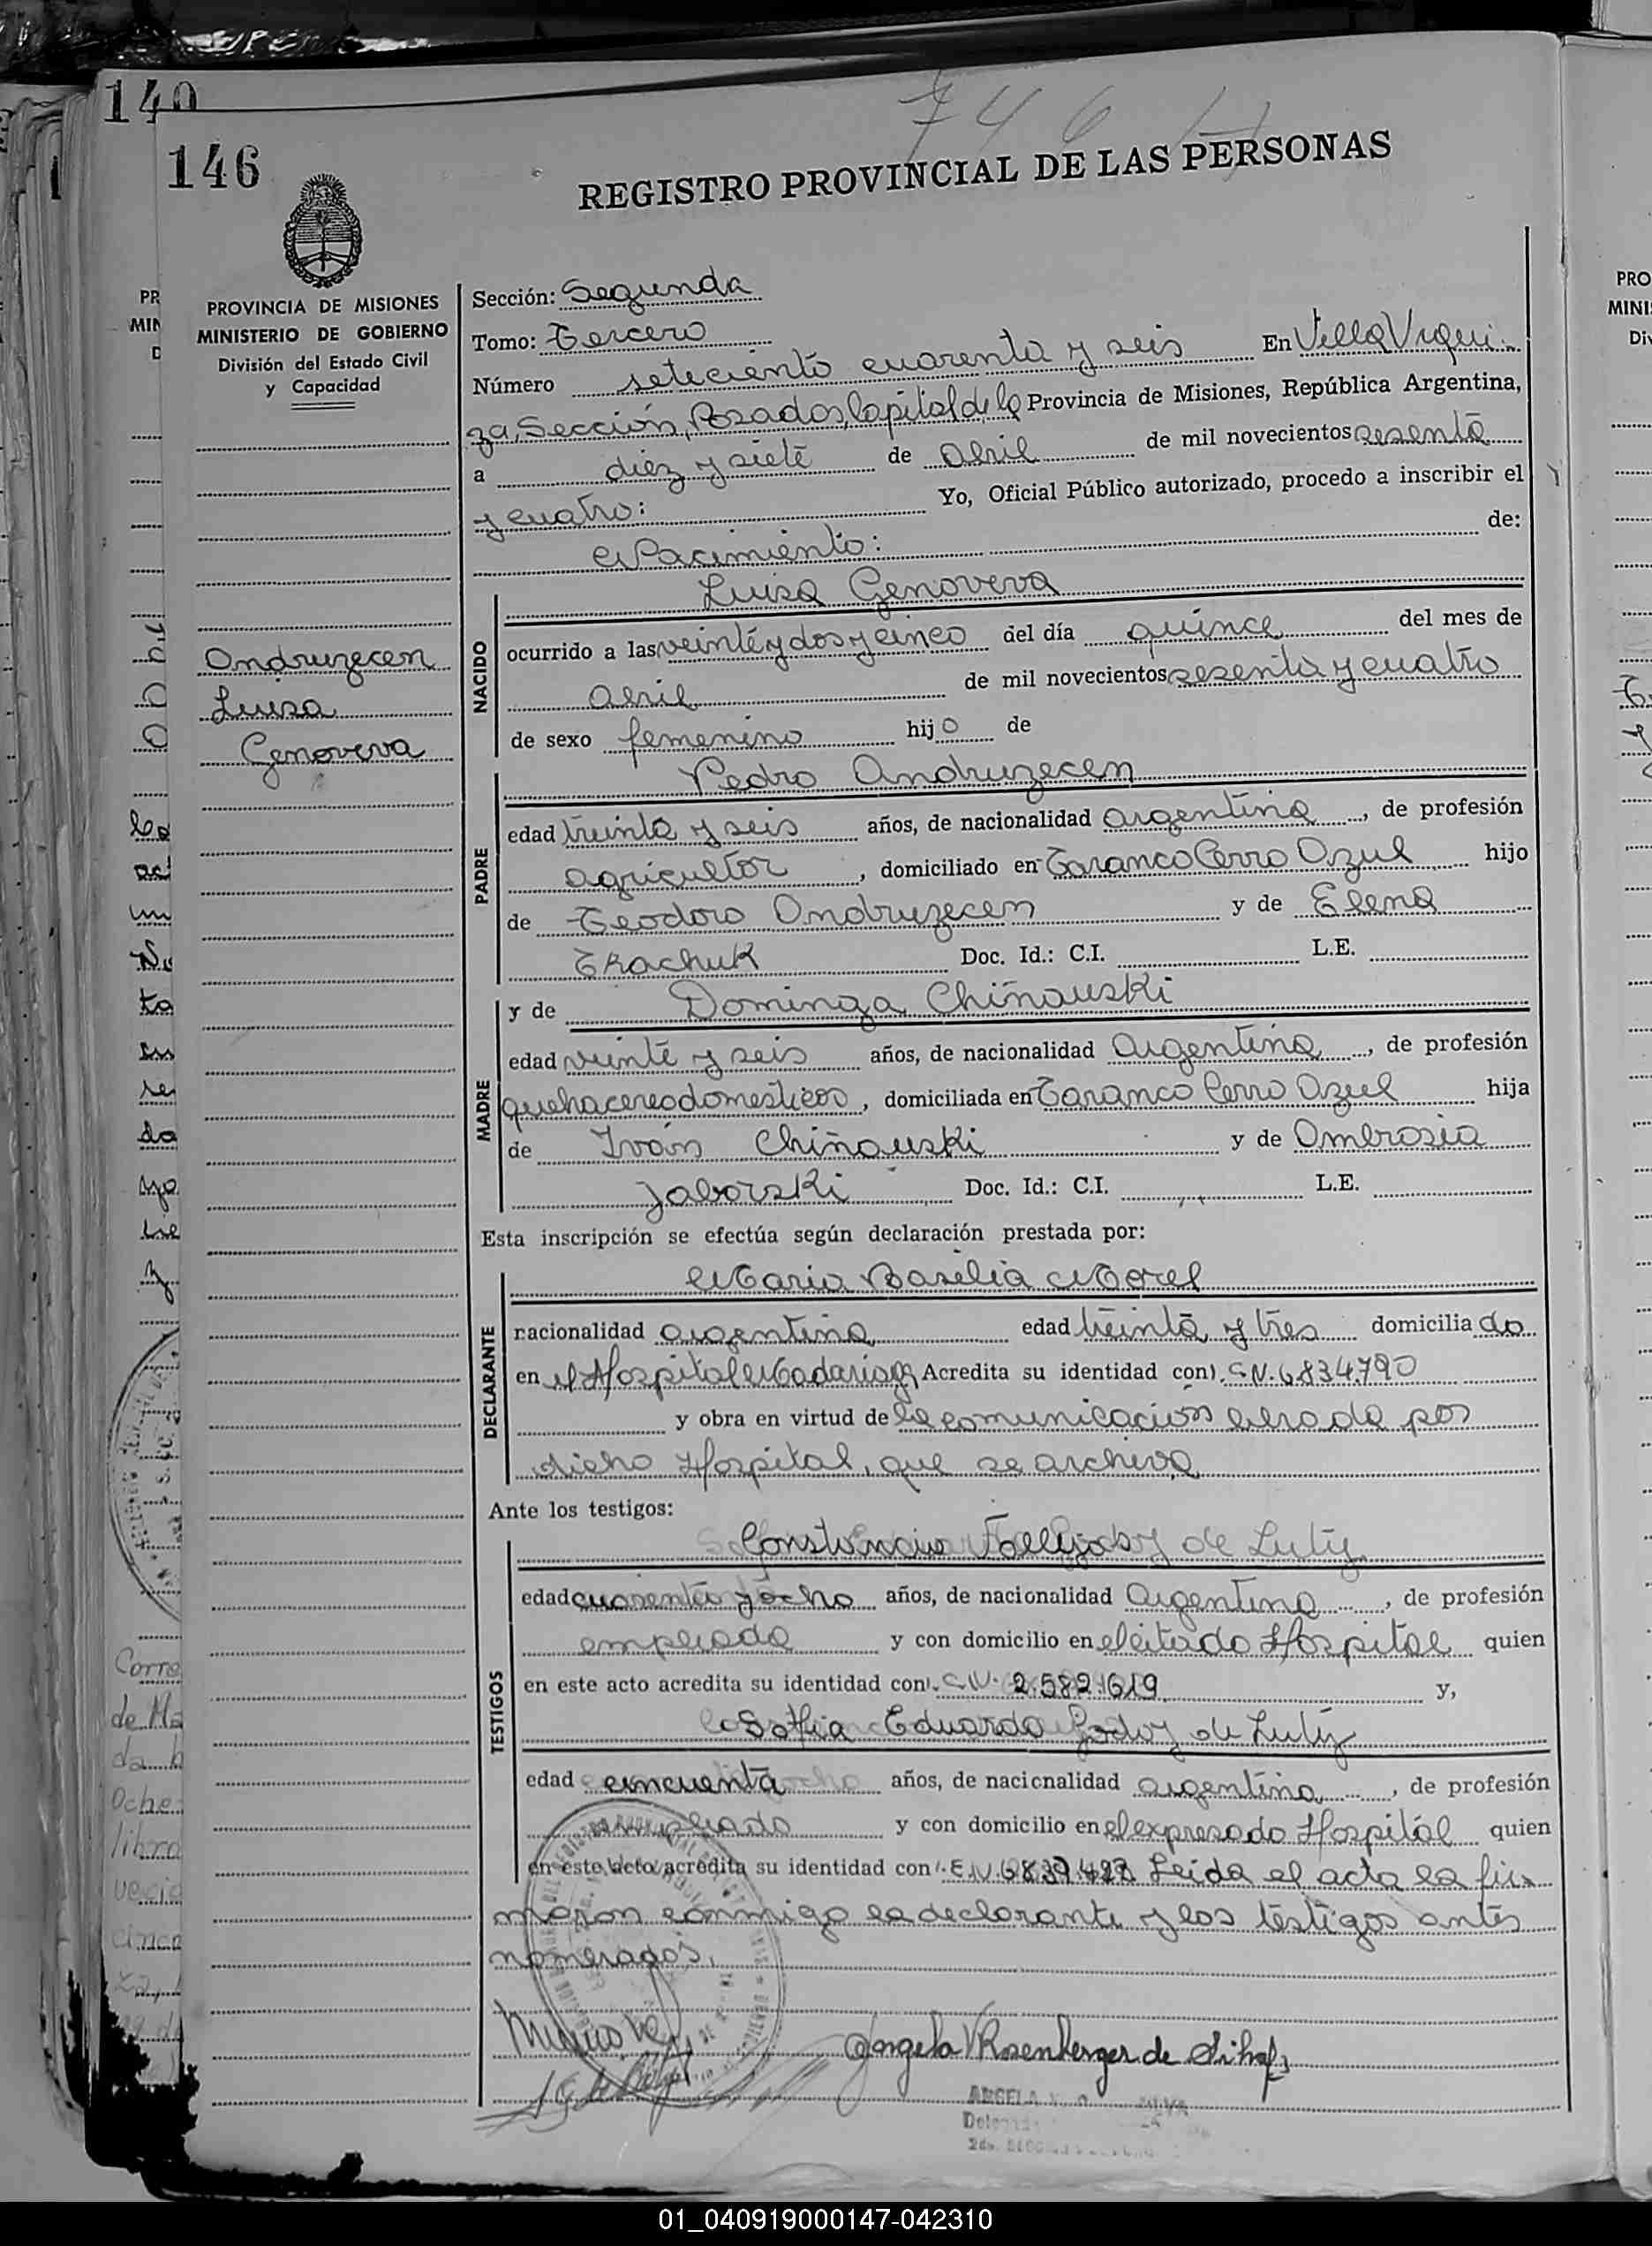 140
746
146
REGISTRO PROVINCIAL DE LAS PERSONAS
PROVINCIA DE MISIONES
MINISTERIO DE GOBIERNO
División del Estado Civil
y Capacidad
Andruzecen
Luisa
Genoveva
Sección: Segunda
Tomo: Tercero
Número seteciento cuarenta y seis En Villa Urqui-
za, Sección, Posadas, Capital de la Provincia de Misiones, República Argentina,
a diez y siete de abril de mil novecientos sesenta
y cuatro: Yo, Oficial Público autorizado, procedo a inscribir el
Nacimiento: de:
NACIDO
Luisa Genoveva
ocurrido a las veinte y dos y cinco del día quince del mes de
abril de mil novecientos sesenta y cuatro
de sexo femenino hija de
PADRE
Pedro Andruzecen
edad treinta y seis años, de nacionalidad argentina, de profesión
agricultor, domiciliado en Taranco Cerro Azul hijo
de Teodoro Andruzecen y de Elena
Tkachuk Doc. Id.: C.I. L.E.
MADRE
y de Dominga Chiñauski
edad veinte y seis años, de nacionalidad Argentina, de profesión
quehaceres domesticos, domiciliada en Taranco Cerro Azul hija
de Iván Chiñauski y de Ambrosia
Jaborski Doc. Id.: C.I. L.E.
Esta inscripción se efectúa según declaración prestada por:
DECLARANTE
Maria Basilia Morel
nacionalidad argentina edad treinta y tres domiciliada
en el Hospital Madariaga Acredita su identidad con). C.N. 6.834.790
y obra en virtud de la comunicación librada por
dicho Hospital, que se archiva
Ante los testigos:
TESTIGOS
de Luty
edad cuarenta y ocho años, de nacionalidad Argentina, de profesión
empleada y con domicilio en el citado Hospital quien
en este acto acredita su identidad con). C.N. 2.582.619 y,
Sofia Eduarda Godoy de Luty
edad cincuenta años, de nacionalidad argentina, de profesión
empleada y con domicilio en el expresado Hospital quien
en este acto acredita su identidad con). Leida el acta la fir
maron conmigo la declarante y los testigos antes
nomerados.
Angela V Rosenberger de Silva
ANGELA
01_040919000147-042310